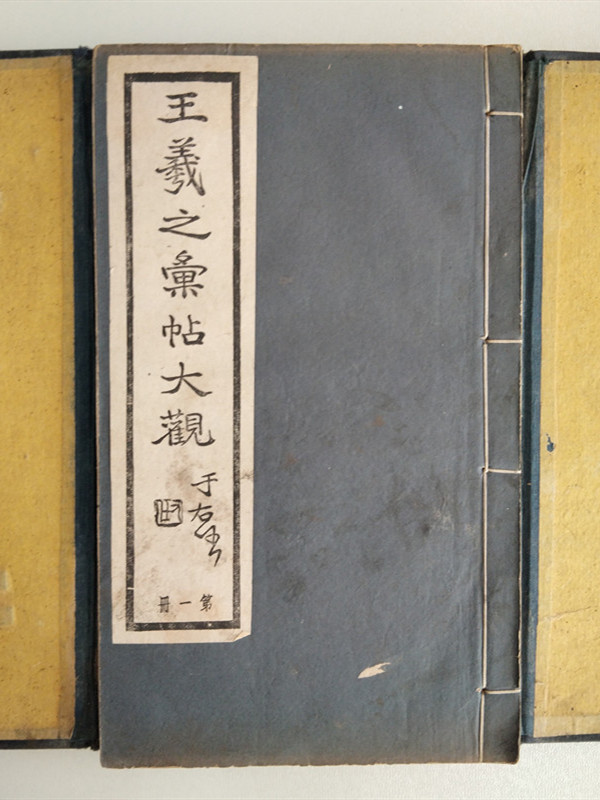 王羲之彙帖大觀
于右任
第一冊